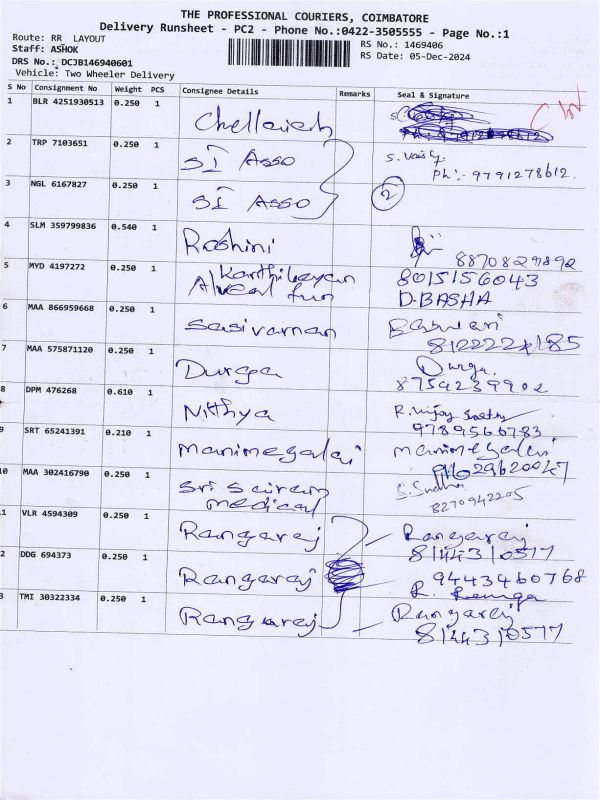 THE PROFESSIONAL COURIERS, COIMBATORE
Delivery Runsheet - PC2 - Phone No.:0422-3505555 - Page No.:1
Route: RR LAYOUT
RS No.: 1469406
Staff: ASHOK
RS Date: 05-Dec-2024
DRS No.: DCJB146940601
Vehicle: Two Wheeler Delivery
S No Consignment No Weight PCS Consignee Details Remarks Seal & Signature
1 BLR 4251930513 0.250 1
2 TRP 7103651 0.250 1 SI Asso S. Vaisg. Ph:- 9791278612.
3 NGL 6167827 0.250 1 SI Asso 2
4 SLM 359799836 0.540 1 Roshini 8870829892
5 MYD 4197272 0.250 1 Karthikeyan 8015156043
D.BASHA
6 MAA 866959668 0.250 1 Sasivarnan
7 MAA 575871120 0.250 1 Durga Durga.
8754239902
8 DPM 476268 0.610 1 Nithya R. Vijay
9789566783
9 SRT 65241391 0.210 1 Manimegalai Manimegalai
10 MAA 302416790 0.250 1 Sri Sairam Medical S. Sudha
8270942205
1 VLR 4594309 0.250 1 Rangaraj Rangaraj
8144310577
2 DDG 694373 0.250 1 Rangaraj 9443460768
R. Renuga
3 TMI 30322334 0.250 1 Rangaraj Rangaraj
8144310577